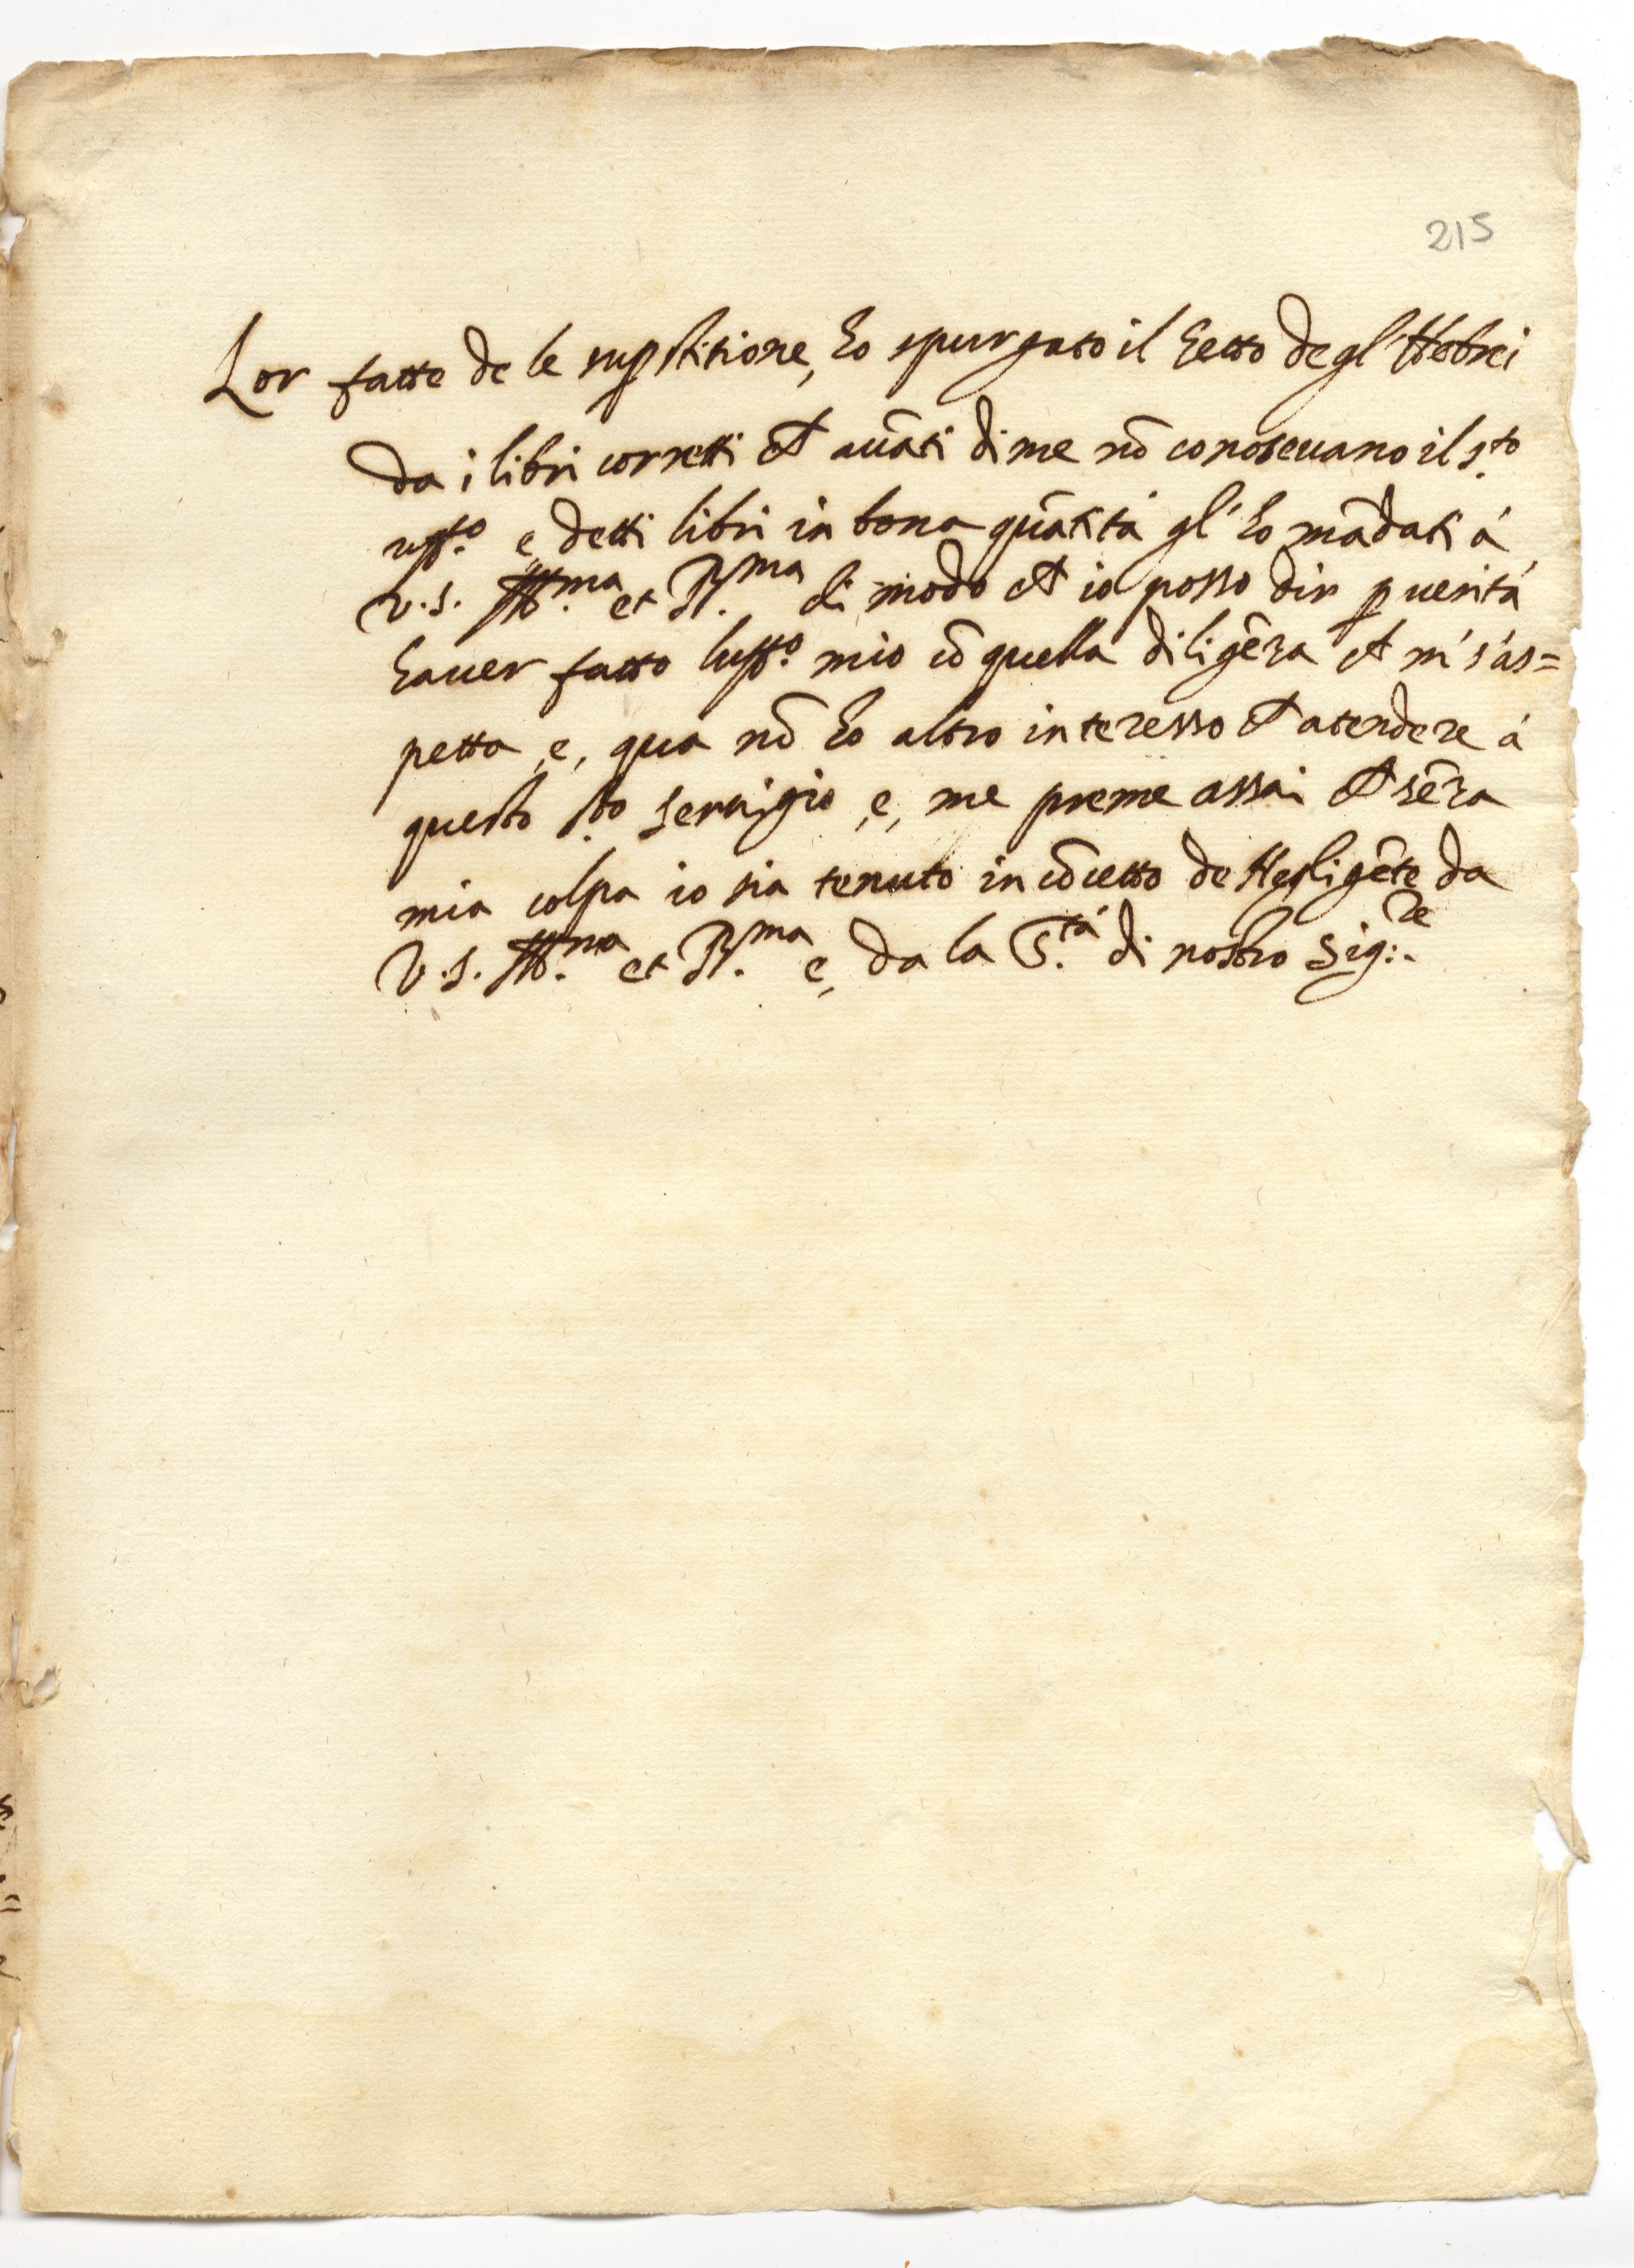 215
Lor fatte de le sup̱stitione, ho spurgato il hetto degl'Hebrei
da i libri corretti ch avāti di me nō conoscevano il s.to
uff.o e, detti libri in bona quātità gl'ho mādati à
V.S. Ill.ma et R.ma di modo ch io posso dir p̱ verità
haver fatto luff.o mio cō quella diligēza ch m's'as=
petta ,e, qua nō ho altro interesso ch atendere à
questo s.to servigio ,e, me preme assai ch sēza
mia colpa io sia tenuto in cōcetto de Negligēte da
V.S. Ill.ma et R.ma e, da la S.tà di nostro Sig:re